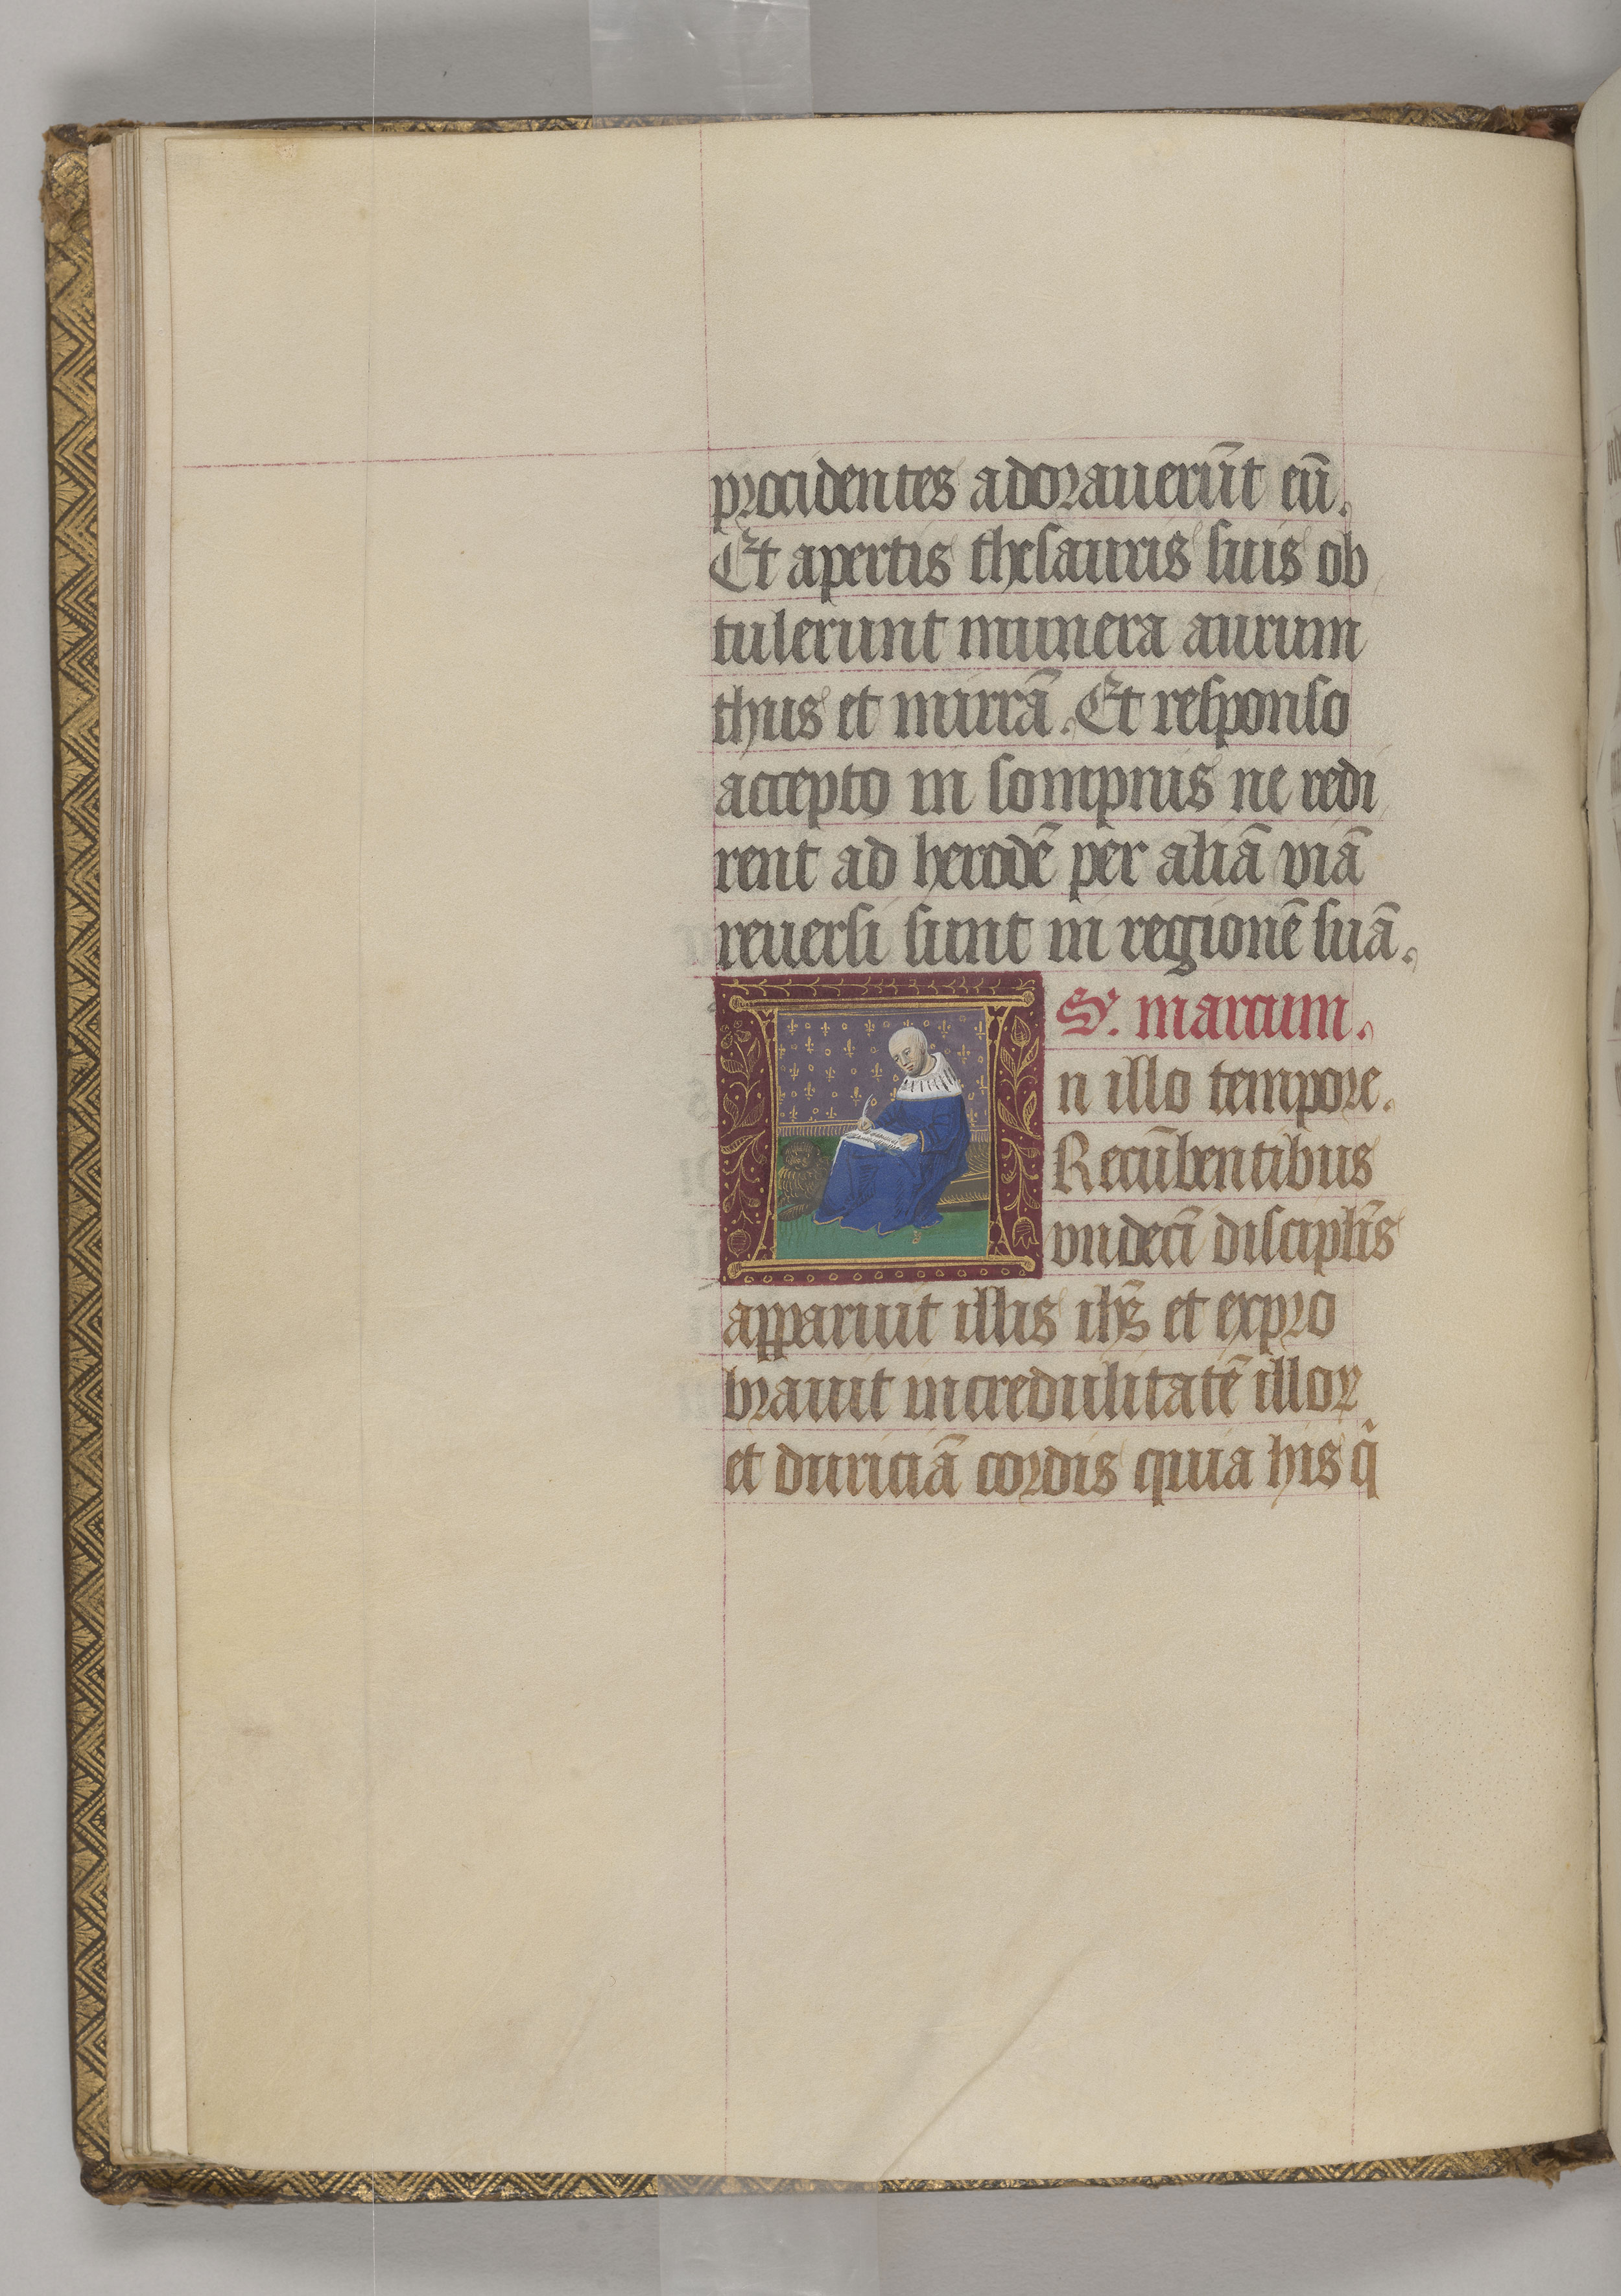 procidentes adorauerūt eū.
Et apertis thesauris suis ob
tulerunt munera aurum
thus et mirrā. Et responso
accepto in sompnis ne redi
rent ad herodē per aliā viā
reuersi sunt in regionē suā.
Sᵉ. marcum.
n illo tempore.
Recūbentibus
vndecī discipl̄is
apparuit illis ih̄s et expro
brauit incredulitatē illoꝝ
et duriciā cordis quia his q̄